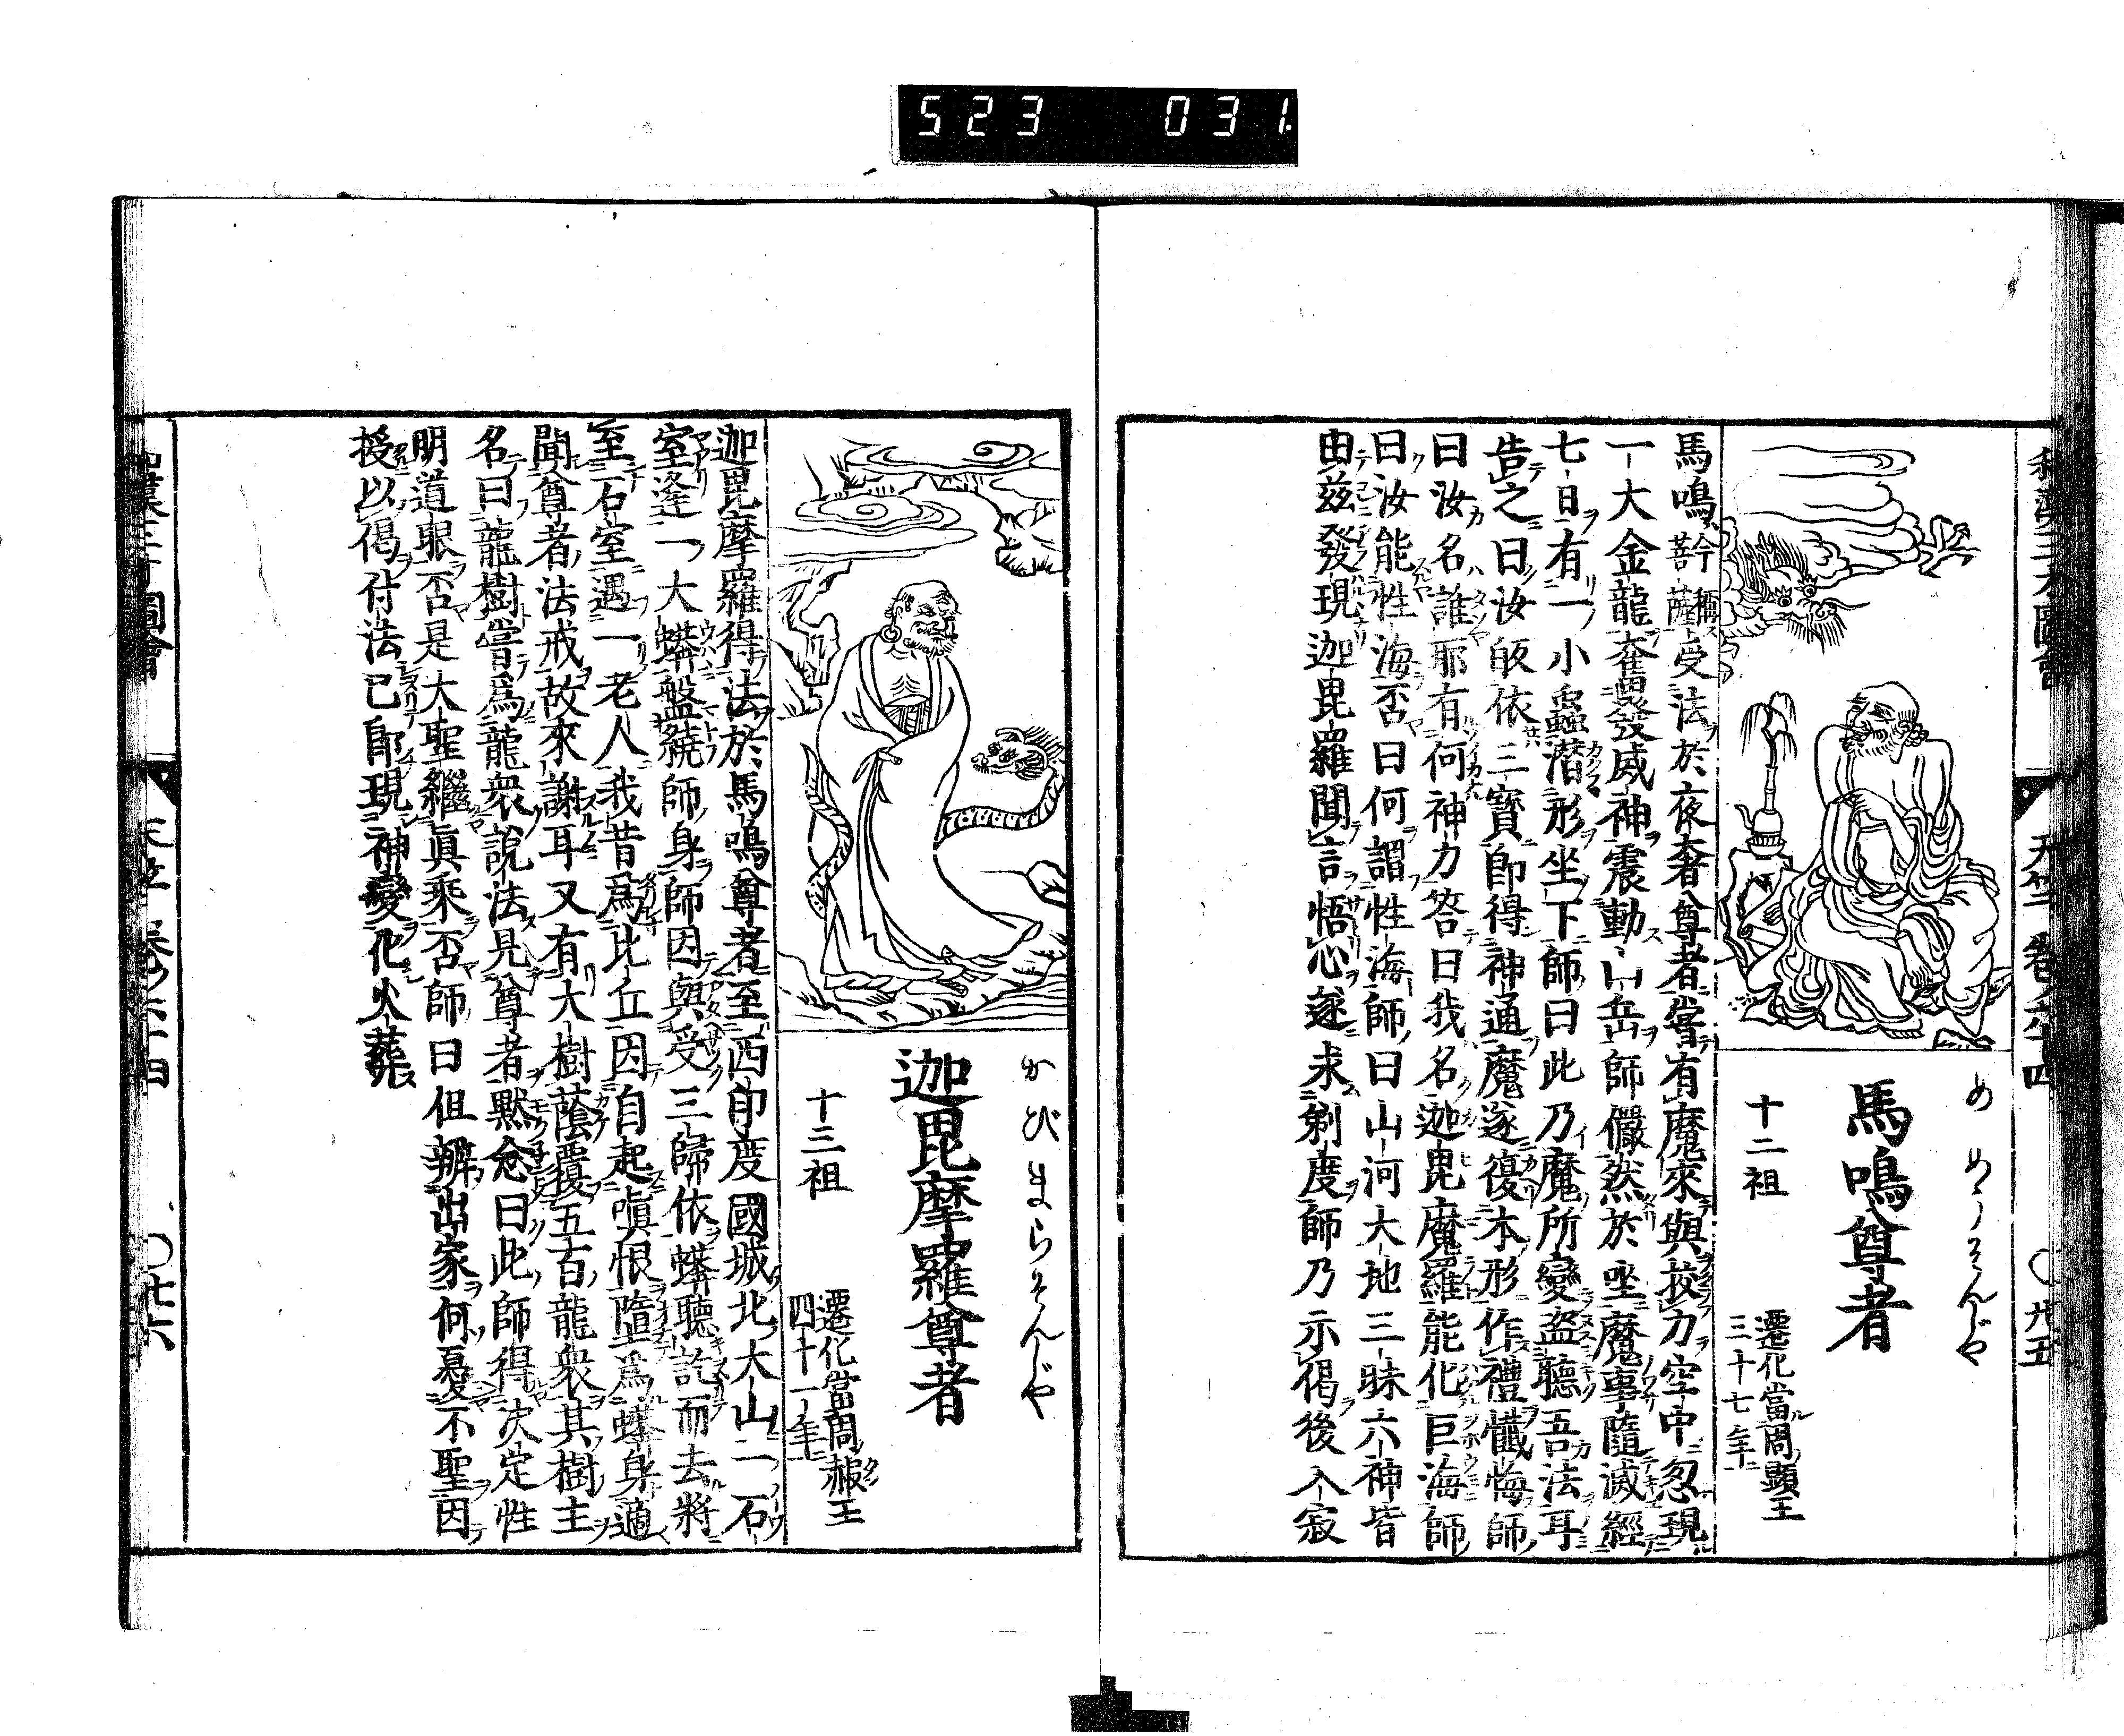 523 031
天竺 卷六十四 〇 卅五
めめうそんじや
馬鳴尊者
十二祖
遷化當周顯王
三十七年
馬鳴 今稱菩薩 受法於夜奢尊者嘗有魔來與挍力空中忽現
一大金龍奮發威神震動山岳師儼然於坐魔事隨滅經
七日有一小蟲潛形坐下師曰此乃魔所變盗聽吾法耳
告之曰汝皈依三寶卽得神通魔遂復本形作禮懺悔師
曰汝名誰耶有何神力答曰我名迦毘魔羅能化巨海師
曰汝能性海否曰何謂性海師曰山河大地三昧六神皆
由茲發現迦毘羅聞言悟心遂求剃度師乃示偈後入寂
かびまらそんじや
迦毘摩羅尊者
十三祖
遷化當周赧王
四十一年
迦毘摩羅得法於馬鳴尊者至西印度國城北大山一石
室逢一大蟒盤繞師身師因與受三歸依蟒聽訖而去將
至石室遇一老人我昔爲比丘因自起嗔恨墮爲蟒身適
聞尊者法戒故來謝耳又有大樹蔭覆五百龍衆其樹主
名曰龍樹嘗爲龍衆說法見尊者默念曰此師得决定性
明道眼否是大聖繼眞乘否師曰但辨出家何憂不聖因
授以偈付法已卽現神變化火葬
圖會 卷六十四 〇 七六